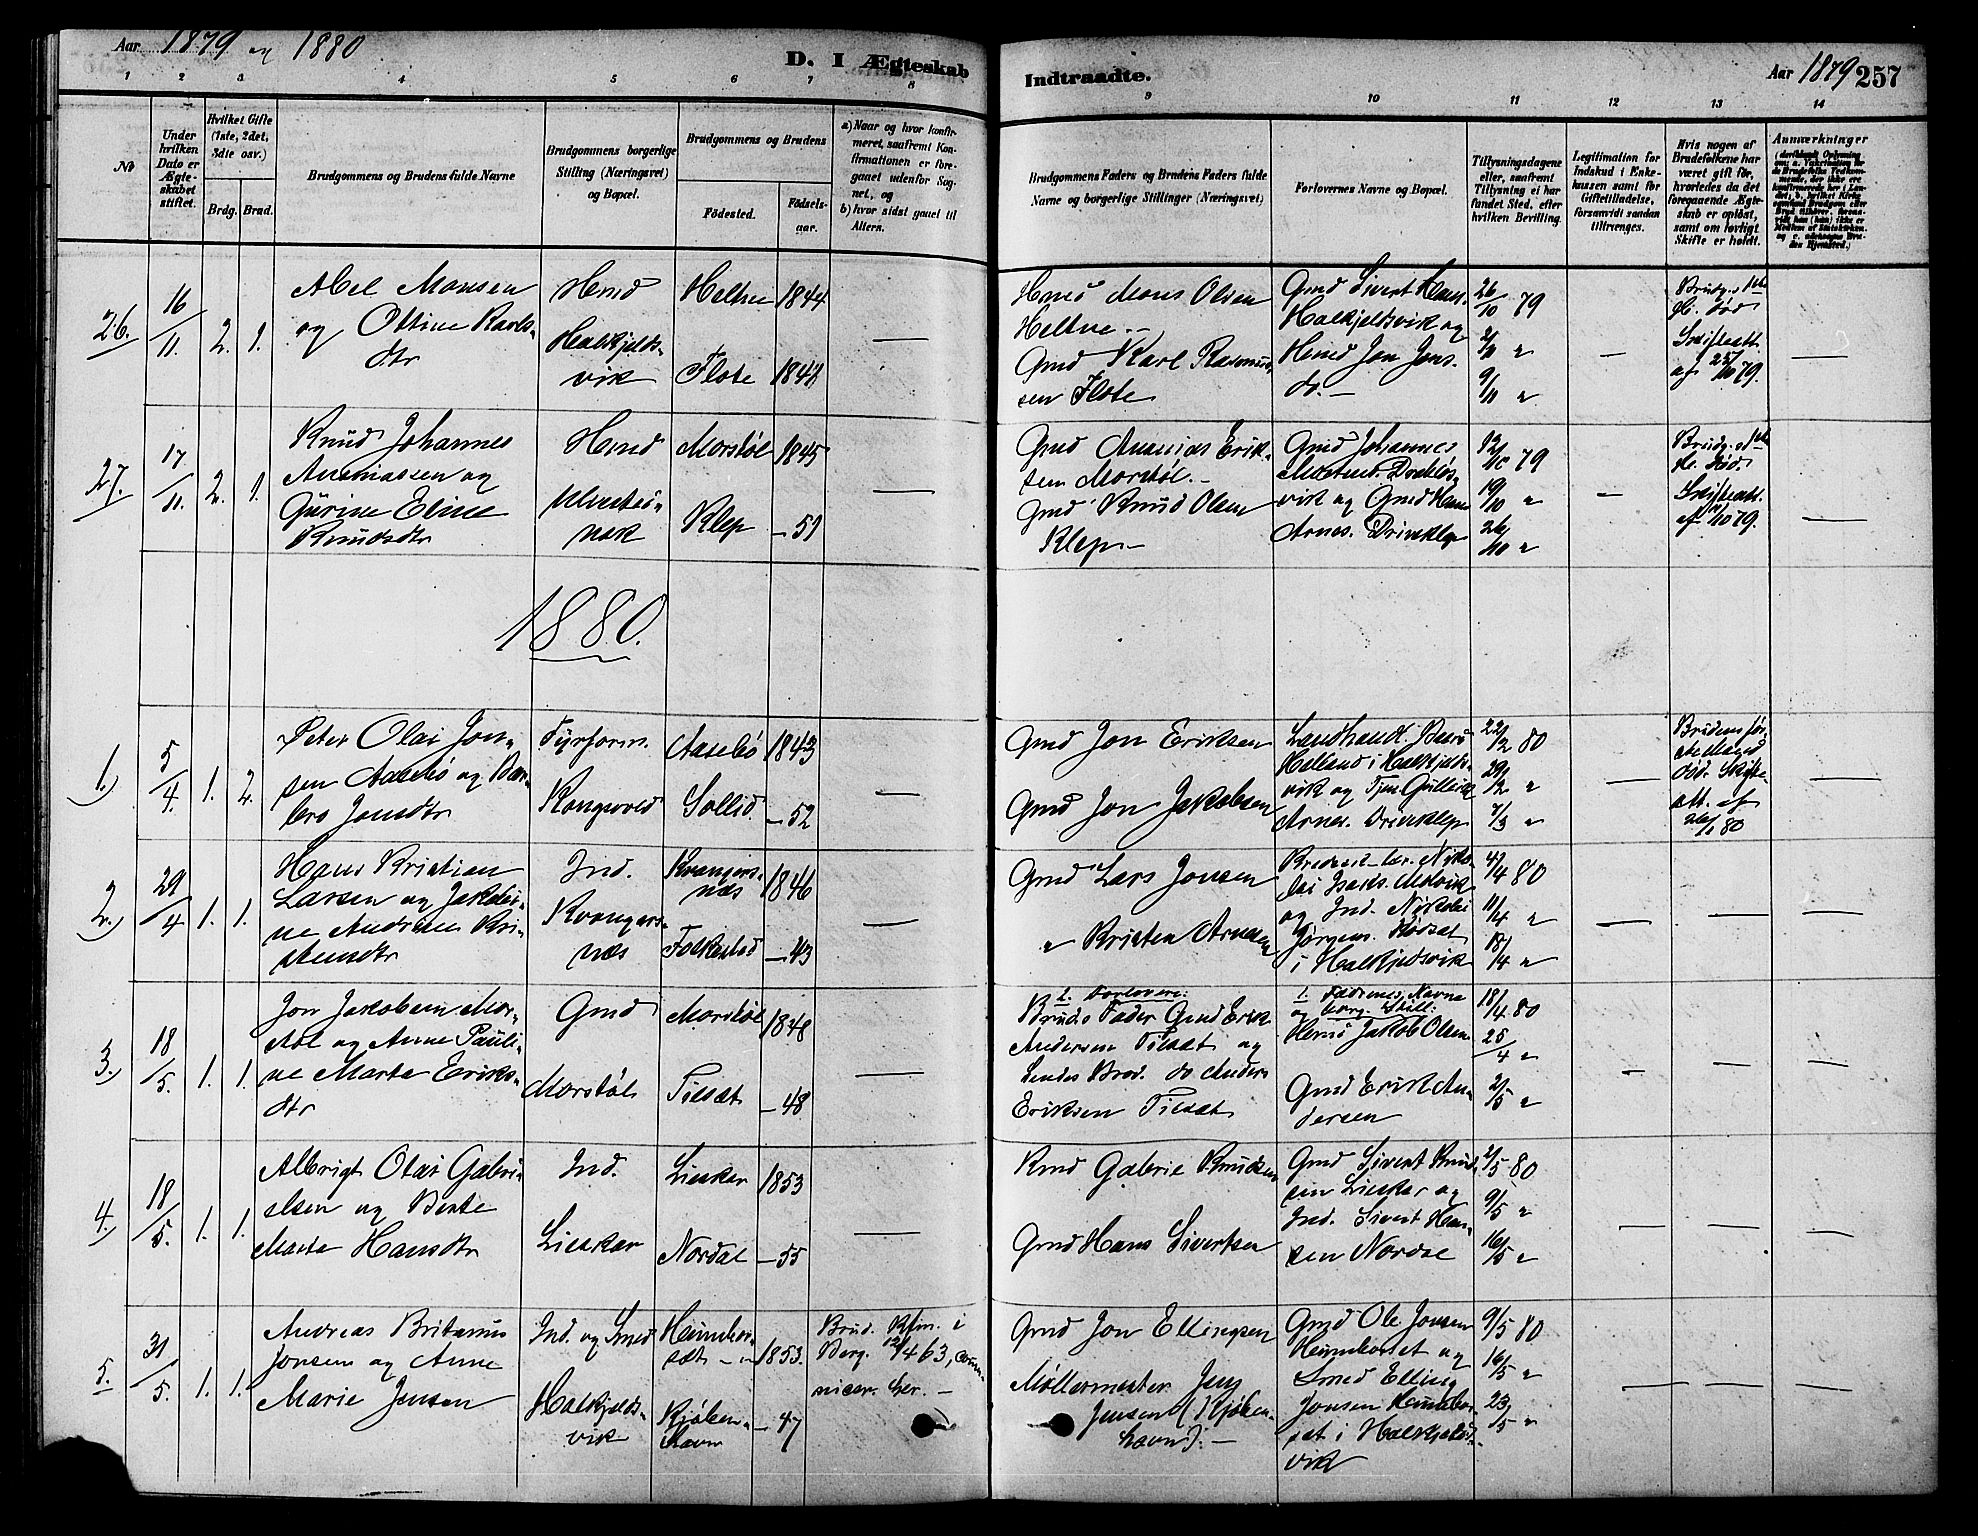 Aar 1879 og 1880
D. I Ægteskab
Indtraadte.
Aar 1879 257
1 2 3 4 5 6 7 8 9 10 11 12 13 14
No
Under hvilken Dato er Ægteskabet stiftet.
Hvilket Gifte (1ste, 2det, 3die osv.)
Brdg. Brud.
Brudgommens og Brudens fulde Navne
Brudgommens borgerlige Stilling (Næringsvei) og Bopæl.
Brudgommens og Brudens
Fødested. Fødselsaar.
a) Naar og hvor konfirmeret, saafremt Konfirmationen er foregaaet udenfor Sognet, og
b) hvor sidst gaaet til Alters.
Brudgommens Faders og Brudens Faders fulde Navne og borgerlige Stillinger (Næringsvei)
Forlovernes Navne og Bopæl.
Tillysningsdagene eller, saafremt Tillysning ei har fundet Sted, efter hvilken Bevilling.
Legitimation for Indskud i Enkekassen samt for Giftetilladelse, forsaavidt saadan tiltrænges.
Hvis nogen af Brudefolkene har været gift før, hvorledes da det foregaaende Ægteskab er opløst, samt om lovligt Skifte er holdt.
Anmærkninger
26. 16/11. 2. 1.
Abel Monsen
og Ottine Karls-
dtr
Hmd
Halkjelds-
vik
Heltne 1844
Flote 1844
—
Hmd Mons Olsen
Heltne. —
Gmd Karl Rasmus-
sen Flote
Gmd Sivert Hans.
Halkjeldsvik og
Hmd Jon Jons.
do. —
26/10 79
2/11 "
9/11 "
—
Brudg.s 1ste
H. død
Skifteatt.
af 25/10 79.
—
27. 17/11. 2. 1.
Knud Johannes
Ananiassen og
Gurine Eline
Knudsdtr
Hmd
Morstøl 1845
Klep — 51
—
Gmd Ananias Erik-
sen Morstøl. —
Gmd Knud Olsen
Klep —
Gmd Johannes
vik og Gmd Hans
Arnes. Driveklep
12/10 79
19/10 "
26/10 "
—
Brudg.s 1ste
H. død
Skifteatt.
—
1880.
1.) 5/4. 1. 2.
Peter Olai Jon-
sen Aasebø og Bar-
bro Jonsdtr
Fyrform.
Kongsvold
Aasebø 1843
Sollid — 52
—
Gmd Jon Eriksen
Gmd Jon Jakobsen
Landhandl.
i Halkjelds-
vik og Tjen. Gullik
Arnes. Driveklep
22/2 80
29/2 "
7/3 "
—
Brudens før-
ste Mand
død. Skifte-
att. af
26/1 80
—
2.) 29/4 1. 1.
Hans Kristian
Larsen og Jakobi-
ne Andrine Kri-
stensdtr
Ind.
Kvangers-
næs
Kvangers-
næs 1846
Folkestad — 43
—
Gmd Lars Jonsen
" Kristen Arnesen
lai Isaks. Molvik
og Ind. Nikolai
Jørgens. Rødsæt
i Halkjeldsvik
4/4 80
11/4 "
18/4 "
— — —
3.) 18/5. 1. 1.
Jon Jakobsen Mor-
støl og Anne Pauli-
ne Marte Eriks-
dtr
Gmd
Morstøl
Morstøl 1848
Tilsæt — 48
—
1. Forlovere:
Bruds Fader Gmd Erik
Andersen Tilsæt og
hendes Brod. do Anders
Eriksen Tilsæt
1. Fædrenes Navne
og borg. Still:
Hmd Jakob Olsen
Gmd Erik An-
dersen
18/4 80
25/4 "
2/5 "
— — —
4.) 18/5. 1. 1.
Albrigt Olai Gabri-
elsen og Berte
Marte Hansdtr
Ind.
Lieskar
Lieskar 1853
Nordal — 55
—
Kmd Gabriel Knudsen
Gmd Hans Sivertsen
Gmd Sivert Knud-
sen Lieskar og
Ind. Sivert Han-
sen Nordal
2/5 80
9/5 "
16/5 "
— — —
5. 31/5. 1. 1.
Andreas Britanus
Jonsen og Anne
Marie Jensen
Ind. og Smed
Halkjelds-
vik
Heimhor-
sæt — 1853.
Kjøben-
havn — 47
Brud. Kfm. i
Berg. 12/4 63, Commu-
nicer. her. —
Gmd Jon Ellingsen
Møllermester Jens
Jensen (Kjøben-
havn): —
Gmd Ole Jonsen
Heimhorset og
Smed Elling
Jonsen Heimhor-
sæt i Halkjelds-
vik
9/5 80
16/5 "
23/5 "
— — —